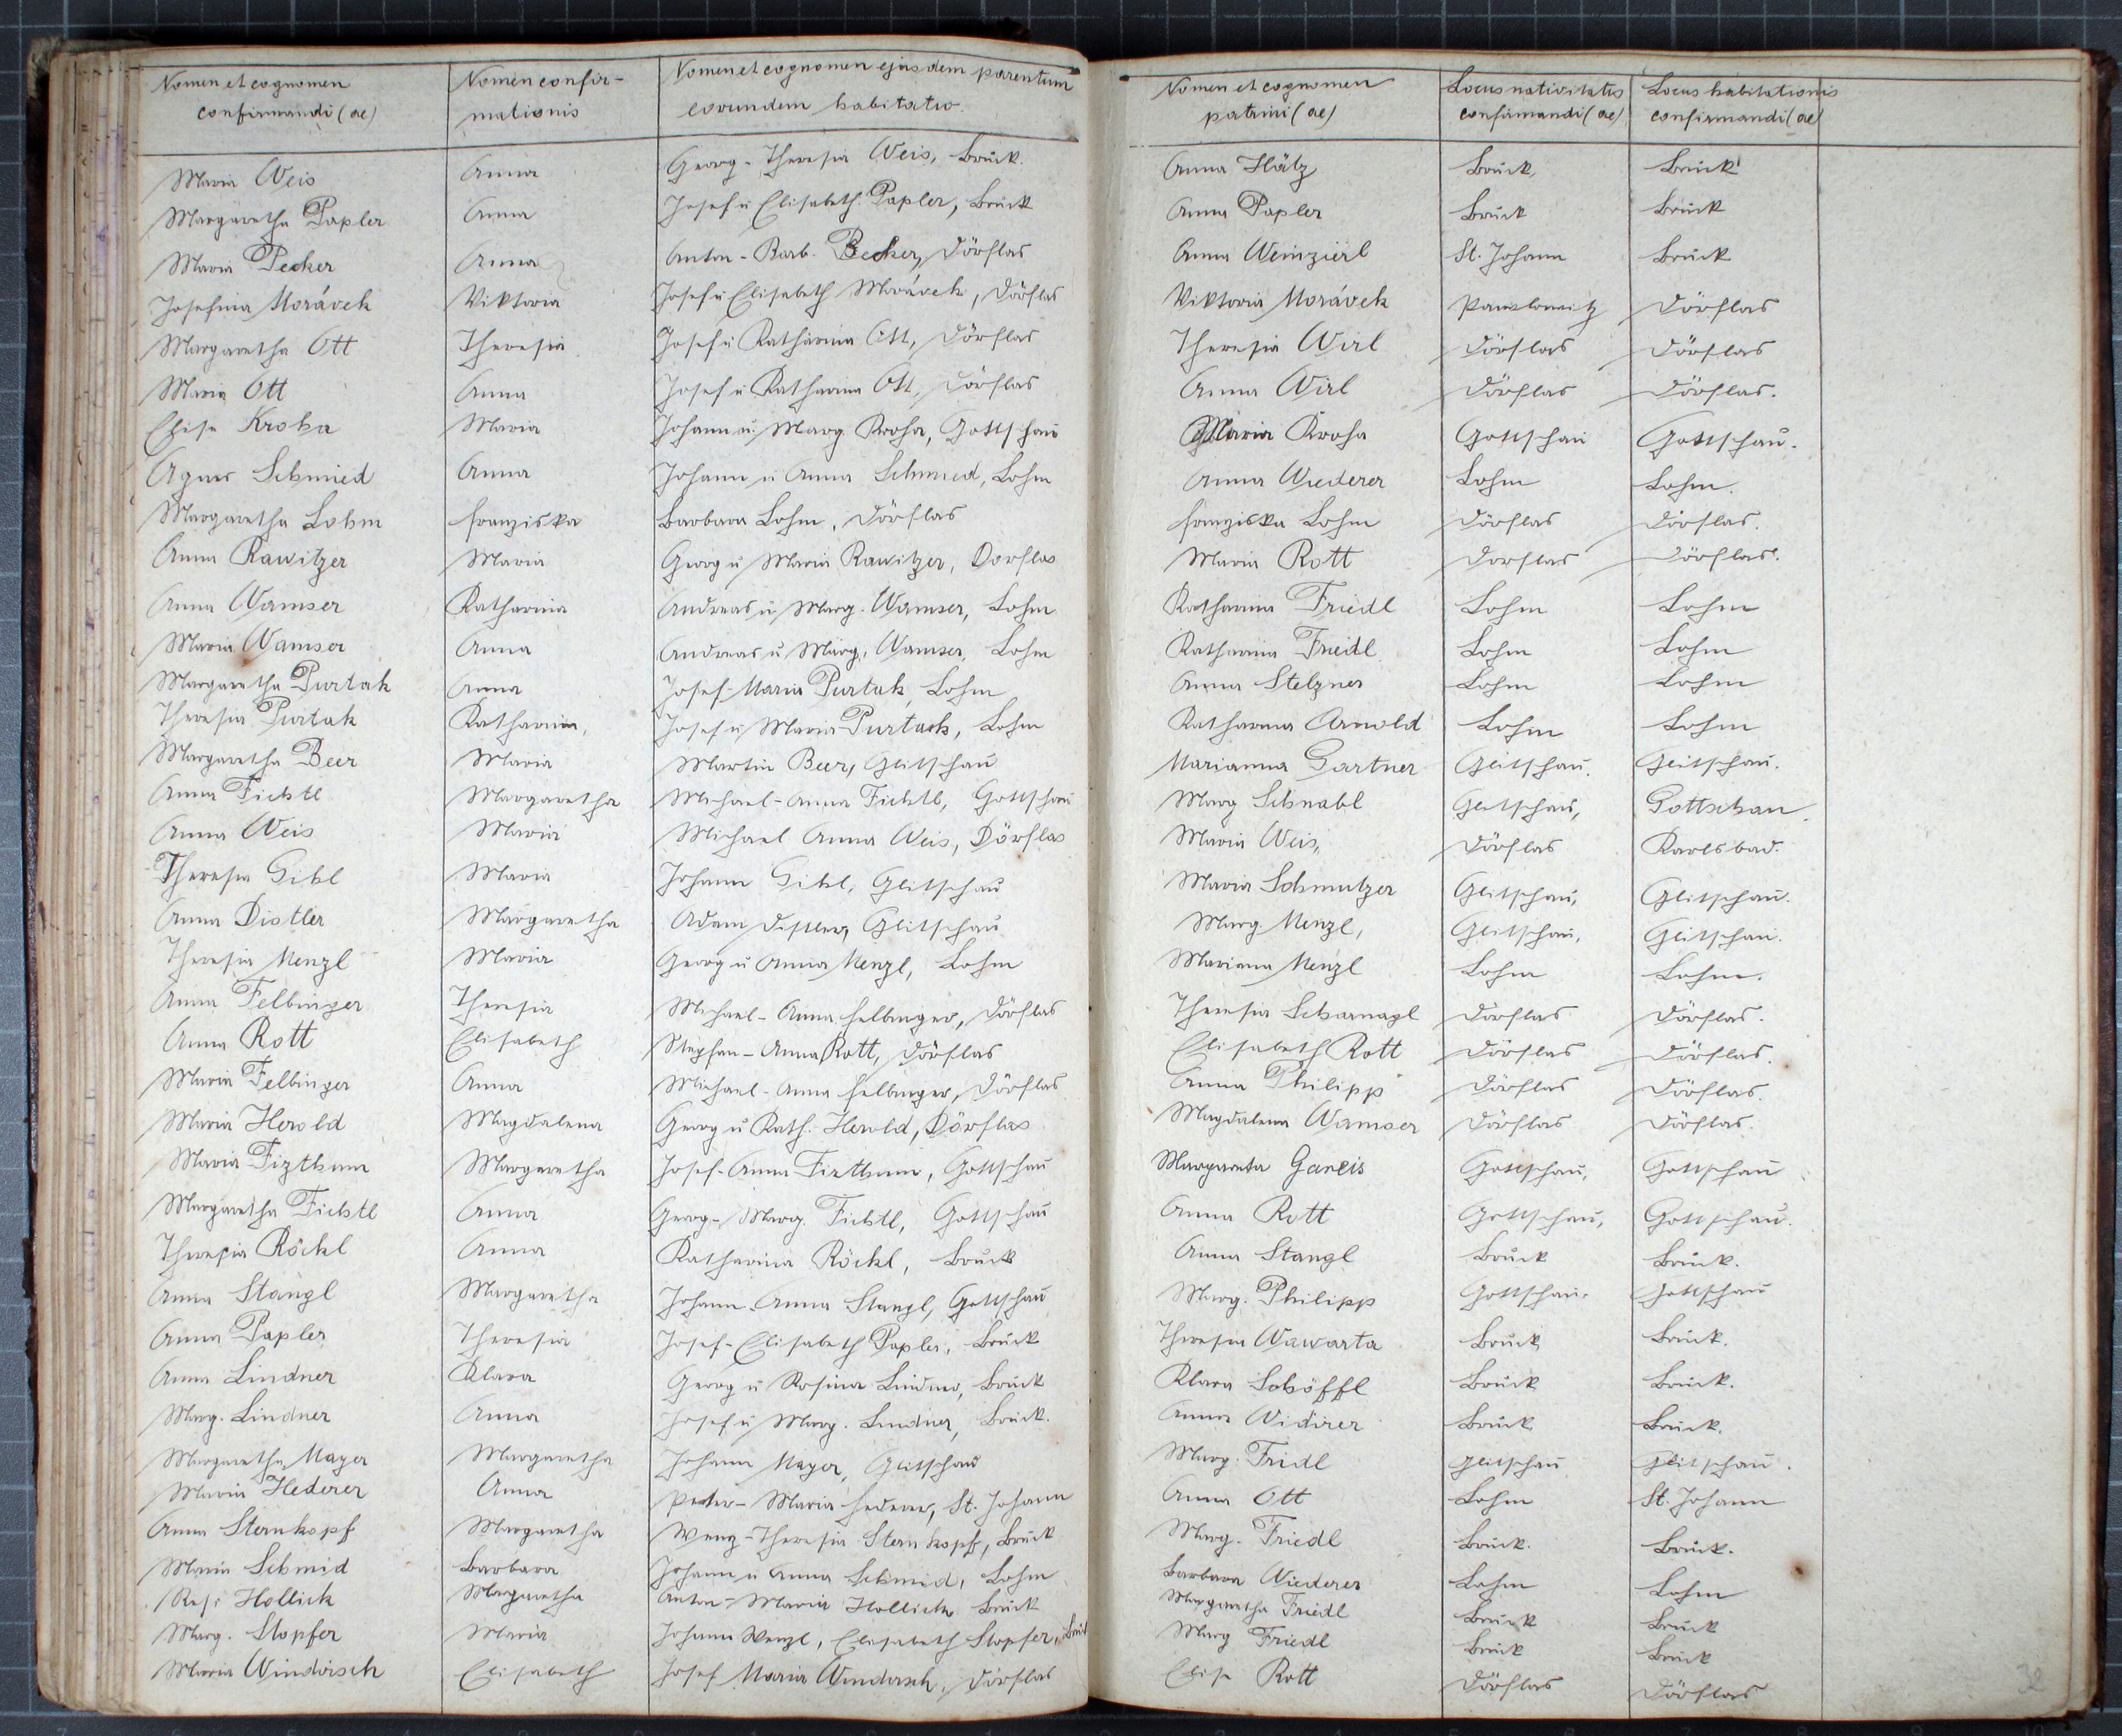 Nomen et cognomen confirmandi (ae) Nomen confirmationis Nomen et cognomen ejusdem parentum eorundem habitatio. Nomen et cognomen patrini (ae) Locus nativitatis confirmandi (ae) Locus habitationis confirmandi (ae)
Maria Weis Anna Georg - Theresia Weis, Bruck. Anna Hätz Bruck, Bruck
Margaretha Papler Anna Josef u Elisabeth Papler, Bruck Anna Papler Bruck Bruck
Maria Pecker Anna Anton - Barb. Becker, Dörflas Anna Weinzierl St. Johann Bruck
Josefina Morávek Viktoria Josef u Elisabeth Morávek, Dörflas Viktoria Morávek Pawlowitz Dörflas
Margaretha Ott Theresia Josef u Katharina Ott, Dörflas Theresia Wirl Dörflas Dörflas
Maria Ott Anna Josef u Katharina Ott, Dörflas Anna Wirl Dörflas Dörflas.
Elise Kroha Maria Johann u. Marg. Kroha, Gottschau Maria Kroha Gottschau Gottschau.
Agnes Schmied Anna Johann u Anna Schmied, Lohm Anna Wiederer Lohm Lohm.
Margaretha Lohm Franziska Barbara Lohm, Dörflas Franziska Lohm Dörflas Dörflas.
Anna Rawitzer Maria Georg u Maria Rawitzer, Dorflas Maria Rott Dorflas Dörflas.
Anna Wamser Katharina Andreas u Marg. Wamser, Lohm Katharina Friedl Lohm Lohm
Maria Wamser Anna Andreas u Marg. Wamser, Lohm Katharina Friedl Lohm Lohm
Margaretha Purtak Anna Josef - Maria Purtak, Lohm Anna Stelzner Lohm Lohm
Theresia Purtak Katharina, Josef u Maria Purtack, Lohm Katharina Arnold Lohm Lohm
Margaretha Beer Maria Martin Beer, Glitschau Marianna Gartner Glitschau. Glitschau.
Anna Fichtl Margaretha Michael - Anna Fichtl, Gottschau Marg Schnabl Glitschau, Gottschau.
Anna Weis Maria Michael Anna Weis, Dörflas Maria Weis, Dörflas Karlsbad.
Theresia Gibl Maria Johann Gibl, Glitschau Maria Schmutzer Glitschau, Glitschau.
Anna Distler Margaretha Adam Distler, Glitschau Marg. Menzl, Glitschau, Glitschau.
Theresia Menzl Maria Georg u Anna Menzl, Lohm Mariana Menzl Lohm Lohm.
Anna Felbinger Theresia Michael - Anna Felbinger, Dörflas Theresia Scharnagl Dörflas Dörflas.
Anna Rott Elisabeth Stephan - Anna Rott, Dörflas Elisabeth Rott Dörflas Dörflas.
Maria Felbinger Anna Michael - Anna Felbinger, Dörflas Anna Philipp Dörflas Dörflas.
Maria Herold Magdalena Georg u Kath. Herold, Dörflas Magdalena Wamser Dörflas Dörflas.
Maria Fizthum Margaretha Josef - Anna Fizthum, Gottschau Margareta Gareis Gottschau, Gottschau
Margaretha Fichtl Anna Georg - Marg. Fichtl, Gottschau Anna Rott Gottschau, Gottschau.
Theresia Röckl Anna Katharina Röckl, Bruck Anna Stangl Bruck Bruck.
Anna Stangl Margaretha Johann - Anna Stangl, Gottschau Marg. Philipp Gottschau, Gottschau
Anna Papler Theresia Josef - Elisabeth Papler, Bruck Theresia Wawarta Bruck Bruck.
Anna Lindner Klara Georg u Rosina Lindner, Bruck Klara Schöffl Bruck Bruck.
Marg. Lindner Anna Josef u Marg. Lindner, Bruck. Anna Widirer Bruck Bruck.
Margaretha Mayer Margaretha Johann Mayer, Glitschau Marg. Fridl Glitschau Glitschau.
Maria Hederer Anna Peter - Maria Hederer, St. Johann Anna Ott Lohm St. Johann
Anna Sternkopf Margaretha Wenz - Theresia Sternkopf, Bruck Marg. Friedl Bruck. Bruck.
Maria Schmid Barbara Johann u Anna Schmid, Lohm Barbara Wiederer Lohm Lohm
Resi Hollick Margaretha Anton - Maria Hollick Bruck Margaretha Friedl Bruck Bruck
Marg. Stopfer Maria Johann Wenzl, Elisabeth Stopfer, Bruck Marg Friedl Bruck Bruck
Maria Windirsch Elisabeth Josef Maria Windirsch, Dörflas Elise Rott Dörflas Dörflas